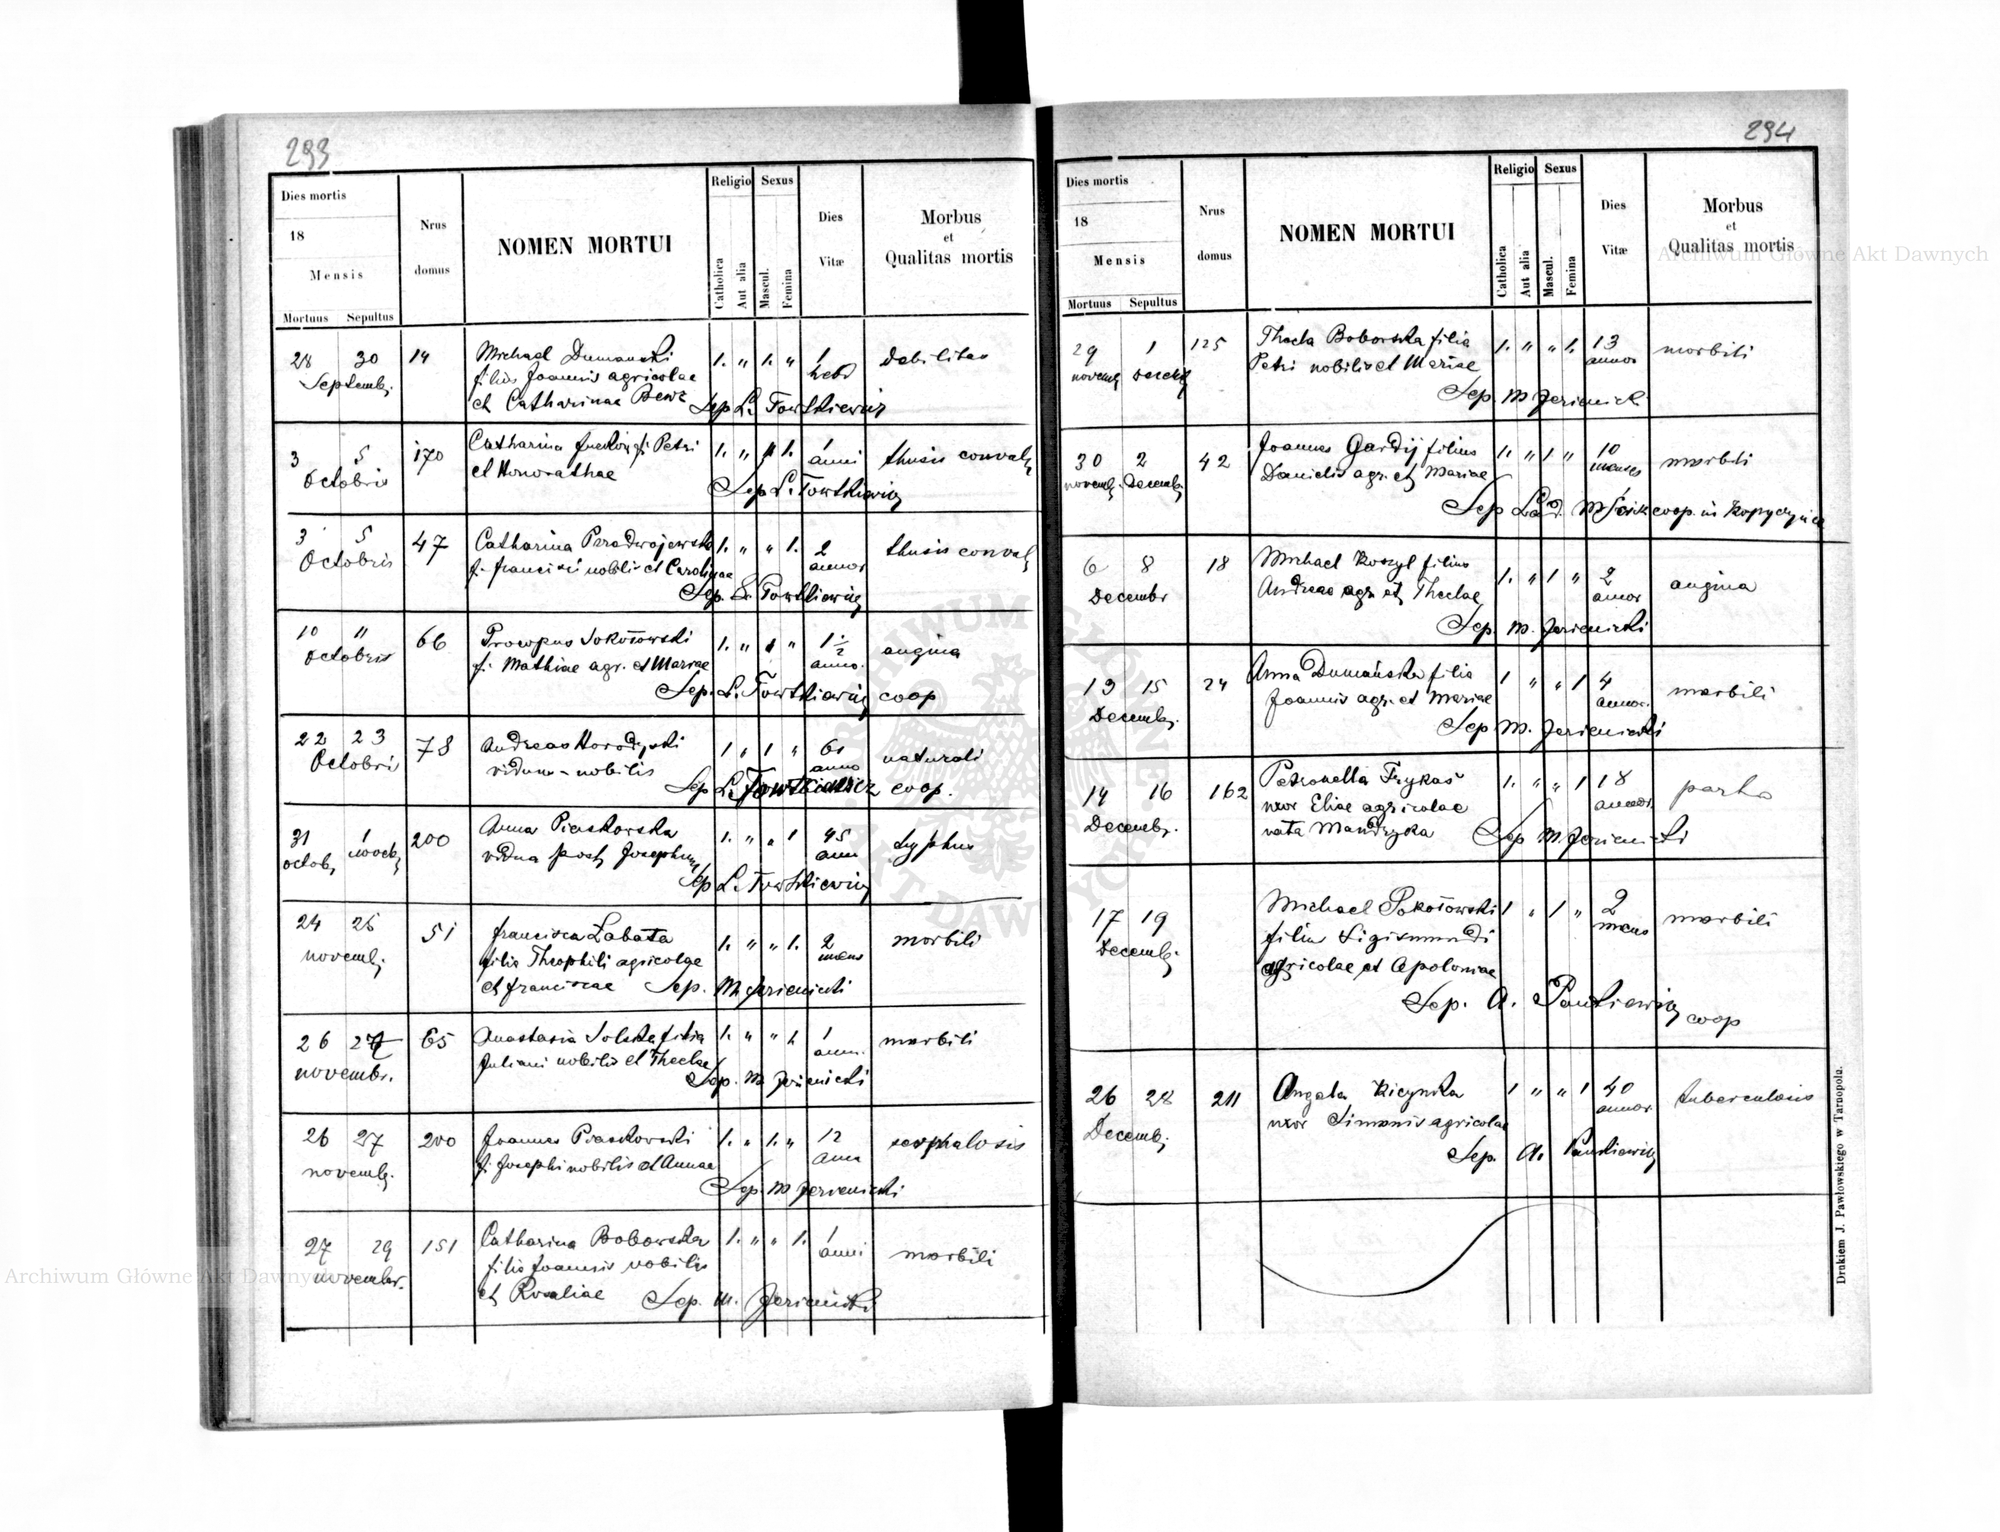 293
Dies mortis
18
Mensis
Mortuus Sepultus
Nrus domus
NOMEN MORTUI
Religio
Catholica
Aut alia
Sexus
Mascul.
Femina
Dies Vitæ
Morbus
et
Qualitas mortis
28 30 14 Michael Dumanski 1. " 1. " 1 Debilitas
Septemb. filius Joannis agricolae hebd
et Catharinae Sep. L. Towtkiewicz
3 5 170 Catharina f. Petri 1. " " 1. 1
Octobris et Honorathae anni
Sep L. Towtkiewicz
3 5 47 Catharina Przedwojewska 1. " " 1. 2
Octobris f. francisci nobilis et Carolinae annor
Sep. L. Towtkiewicz
10 11 66 Procopus Sokołowski 1. " 1 " 1 1/2 angina
Octobris f. Mathiae agr. et Mariae anno.
Sep. L. Towtkiewicz coop
22 23 78 Andreas Horodyski 1 " 1 " naturali
Octobri viduus - nobilis anno
Sep L. Towtkiewicz coop.
31 1 200 Anna Piaskowska 1. " " 1 45 typhus
octob. vidua post Josephum ann
Sep L. Towtkiewicz
24 25 51 francisca Labata 1. " " 1. 2 morbili
novemb. filia Theophili agricolae mens
et franciscae Sep. M. Jezienicki
26 27 65 Anastasia Solska filia 1. " " 1. 1 morbili
novembr. Juliani nobilis et Theclae ann.
Sep. M. Jezienicki
26 27 200 Joannes Piaskowski 1. " 1. " 12
novemb. f. Josephi nobilis et Annae
Sep. M Jezienicki
27 29 151 Catharina Bobowska 1. " " 1. 1 morbili
november. filia Joannis nobilis anni
et Rosaliae Sep. M. Jezienicki
294
Dies mortis
18
Mensis
Mortuus Sepultus
Nrus domus
NOMEN MORTUI
Religio
Catholica
Aut alia
Sexus
Mascul.
Femina
Dies Vitæ
Morbus
et
Qualitas mortis
29 1 125 Thecla Bobowska filia 1. " " 1. 13 morbili
novemb Decemb Petri nobilis et Mariae annor
Sep. M Jezienicki
30 2 42 Joannes Gardij filius 1. " 1 " 10 morbili
novemb. Decemb. Danielis agr. et Mariae menses
Sep Lad. coop. in Kopyczynce
6 8 18 Michael Koszyl filius 1. " 1 " 2 angina
Decembr Andreae agr. et Theclae annor
Sep. M. Jezienicki
13 15 24 Anna Dumańska filia 1 " " 1 4 morbili
Decemb. Joannis agr. et Mariae annor.
Sep. M. Jezienicki
14 16 162 Petronella Frykas 1. " " 1 18
Decemb. uxor Eliae agricolae annor
nata Mandryka Sep M. Jezienicki
17 19 Michael Sokołowski 1 " 1 " 2 morbili
Decemb. filius Sigismundi mens
agricolae et Apoloniae
Sep. A. Pankiewicz
coop
26 28 211 Angela Kicynska 1 " " 1 40 tuberculosis
Decemb. uxor Simonis agricolae annor.
Sep. A. Pankiewicz
Drukiem J. Pawłowskiego w Tarnopolu.
Archiwum Główne Akt Dawnych
Archiwum Główne Akt Dawnych
ARCHIWUM GŁÓWNE AKT DAWNYCH